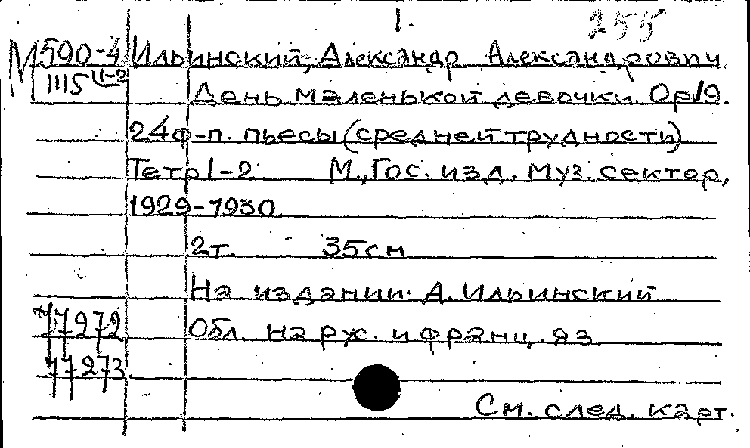 1. 255
М 500-4 Ильинский, Александр Александрович.
1115 1-2 День маленькой девочки. Ор 19.
24 ф-п. пьесы (средней трудности)
Тетр 1-2 М., Гос. изд. Муз. сектор,
1929-1930
2т. 35см
На издании: А. Ильинский
77272 Обл. на рус. и франц. яз
77273
См. след. карт.